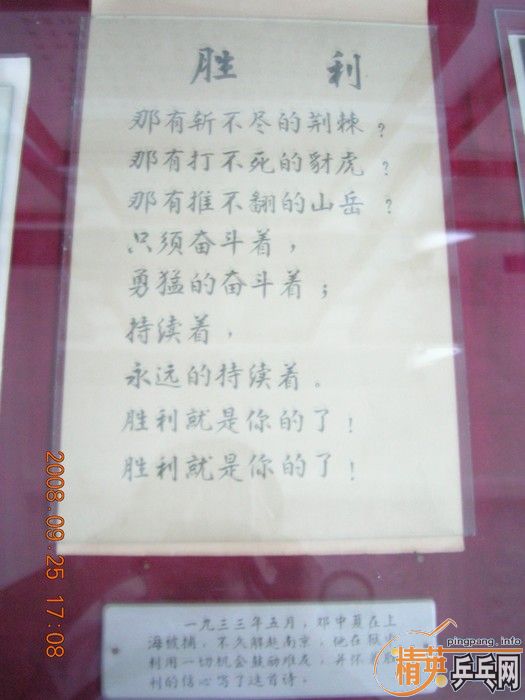 胜 利
那有斩不尽的荆棘？
那有打不死的豺虎？
那有推不翻的山岳？
只须奋斗着，
勇猛的奋斗着；
持续着，
永远的持续着。
胜利就是你的了！
胜利就是你的了！
一九三三年五月，邓中夏在上
海被捕，不久解赴南京，他在狱中
利用一切机会鼓励难友，并怀着胜
利的信心写了这首诗。
2008.09.25 17:08
pingpang.info
精英乒乓网